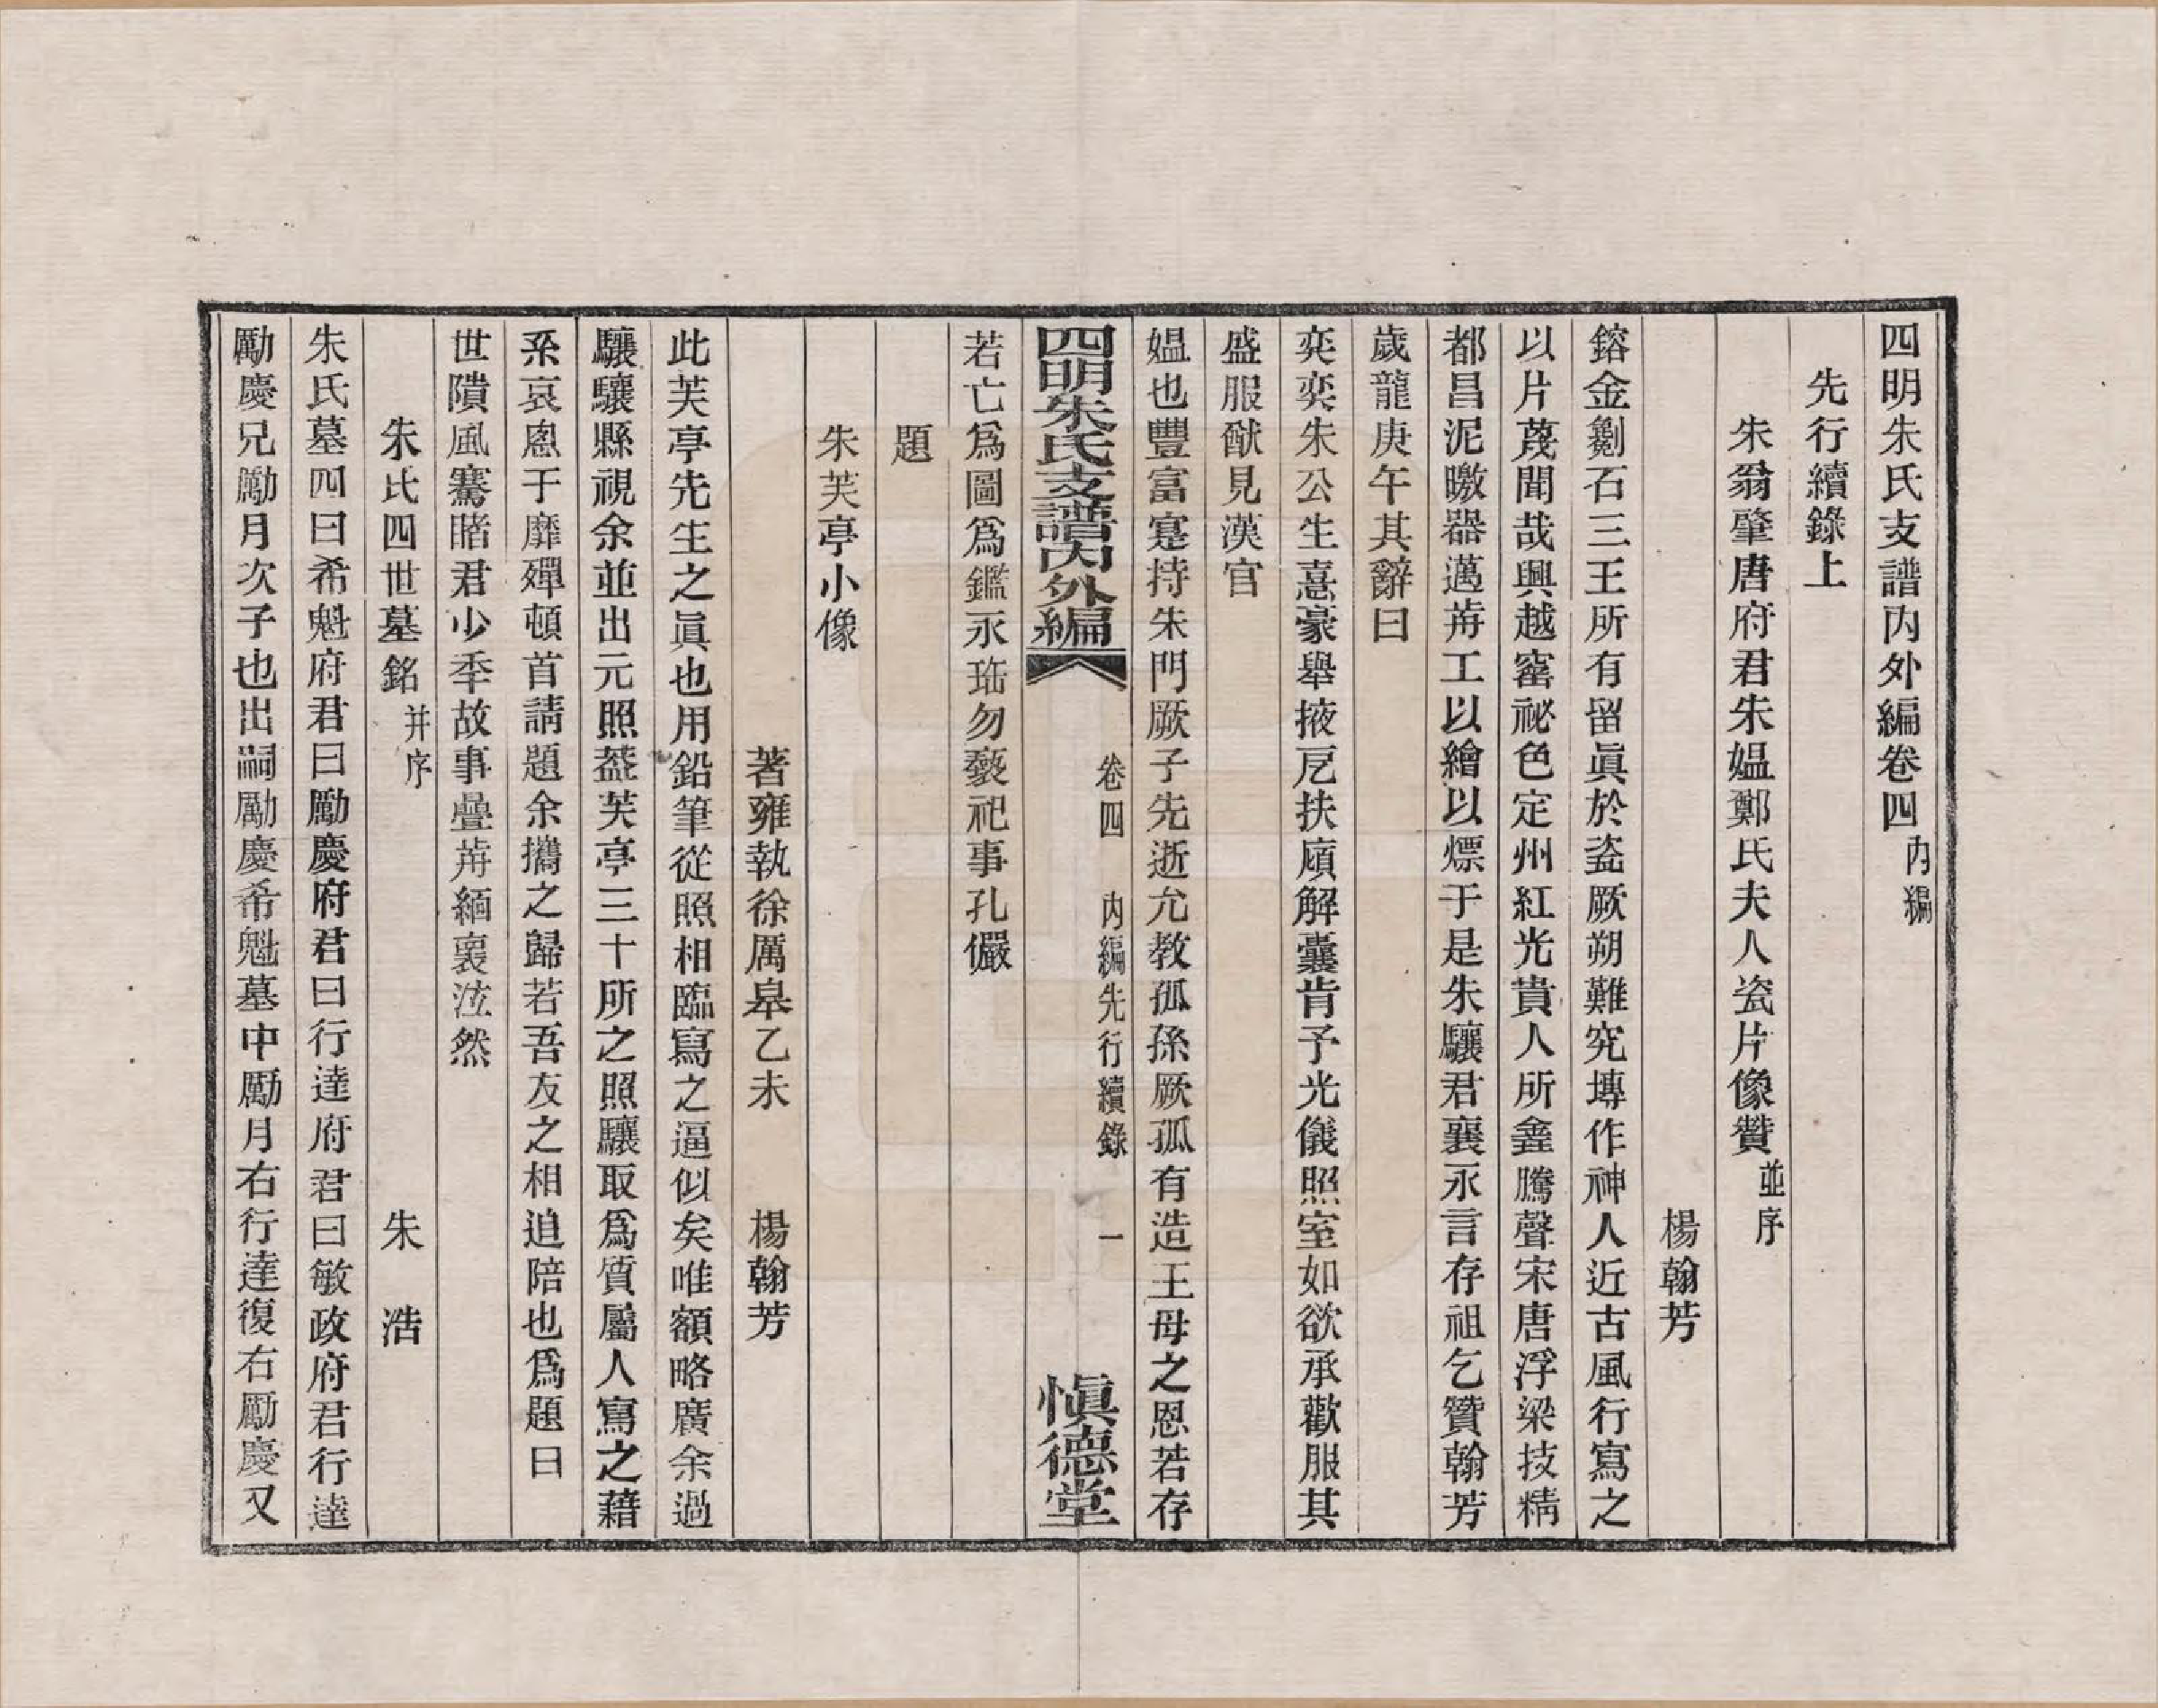 四明朱氏支譜内外編卷四内編
先行續錄上
朱翁肇唐府君朱媼鄭氏夫人瓷片像贊並序
楊翰芳
鎔金劖石三王所有留眞於瓷厥朔難究塼作神人近古風行寫之
以片蔑聞哉興越窰祕色定州紅光貴人所鑫騰聲宋唐浮梁技精
都昌泥暾器邁歬工以繪以熛于是朱驤君襄永言存祖乞贊翰芳
歲龍庚午其辭曰
奕奕朱公生憙豪舉掖戹扶頎解囊肯予光儀照室如欲承歡服其
盛服猷見漢官
媼也豐富寔持朱門厥子先逝允教孤孫厥孤有造王母之恩若存
四明朱氏支譜内外編 卷四 内編先行續錄 一 愼德堂
若亡爲圖爲鑑永珤勿褻祀事孔儼
題
朱芙亭小像
著雍執徐厲皋乙未 楊翰芳
此芙亭先生之眞也用鉛筆從照相臨寫之逼似矣唯額略廣余過
驤驤縣視余並出元照葢芙亭三十所之照驤取爲質屬人寫之藉
系哀恖于靡殫頓首請題余攜之歸若吾友之相追陪也爲題曰
世隤風騫睹君少季故事疊歬緬裹泫然
朱氏四世墓銘并序 朱浩
朱氏墓四曰希魁府君曰勵慶府君曰行達府君曰敏政府君行達
勵慶兄勵月次子也出嗣勵慶希魁墓中勵月右行達復右勵慶又